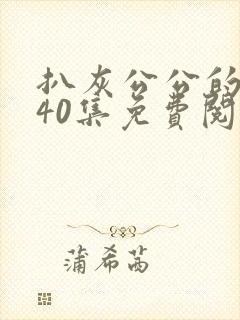 扒灰公公的
40集免費閱
蒲希茜